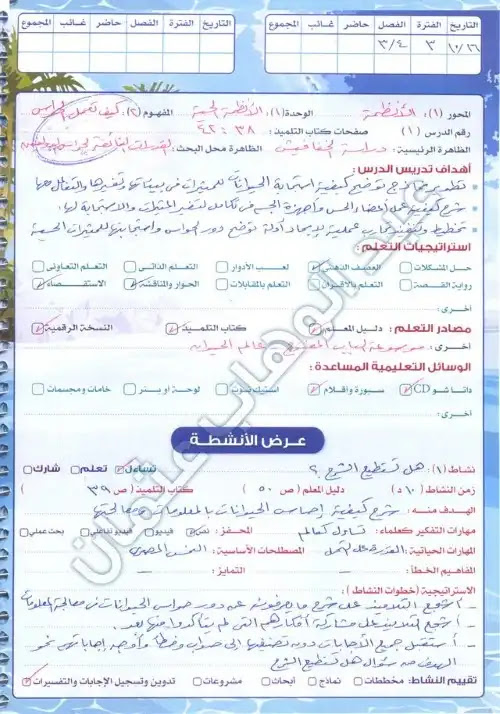 التاريخ الفترة الفصل حاضر غائب المجموع
١٠/١٦ ٣ ٣/٤
التاريخ الفترة الفصل حاضر غائب المجموع
المحور (١): الأنظمة الوحدة (١): الأنظمة الحية المفهوم (٢): كيف تعمل الحواس
رقم الدرس (١) صفحات كتاب التلميذ: ٣٨ : ٤٢
الظاهرة الرئيسية: دراسة الخفافيش الظاهرة محل البحث:
أهداف تدريس الدرس:
تطوير نماذج توضح كيفية استجابة الحيوانات للمثيرات في بيئاتها وتفسيرها والتفاعل معها
شرح كيفية عمل أعضاء الحس وأجهزة الجسم في تكامل لتفسير المثيرات والاستجابة لها.
تخطيط وتنفيذ تجارب عملية لإيجاد أدلة توضح دور الحواس واستجابتها للمثيرات الحسية
استراتيجيات التعلم:
حل المشكلات العصف الذهني لعب الأدوار التعلم الذاتي التعلم التعاوني
رواية القصة التعلم بالأقران التعلم بالمقابلات الحوار والمناقشة الاستقصاء
أخرى:
مصادر التعلم: دليل المعلم كتاب التلميذ النسخة الرقمية
أخرى: موسوعة عالم الحيوان
الوسائل التعليمية المساعدة:
داتا شو CD سبورة وأقلام استيك نوت لوحة أو بنر خامات ومجسمات
أخرى:
عرض الأنشطة
نشاط (١): هل تستطيع الشرح ؟ تساءل تعلم شارك
زمن النشاط (١٠ د) دليل المعلم (ص ٥٠) كتاب التلميذ (ص ٣٩)
الهدف منه: شرح كيفية إحساس الحيوانات بالمعلومات ومعالجتها
مهارات التفكير كعلماء: تساءل كعالم المحفز: نص فيديو فيديو تفاعلي بحث عملي
المهارات الحياتية: القدرة على المصطلحات الأساسية:
المفاهيم الخطأ: التمايز:
الاستراتيجية (خطوات النشاط):
- أشجع التلاميذ على شرح ما يعرفونه عن دور حواس الحيوانات في معالجة المعلومات
- أشجع التلاميذ على مشاركة أفكارهم التي لم يتأكدوا منها بعد.
- أستقبل جميع الإجابات دون تصنيفها إلى صواب وخطأ وأوجه إجاباتهم نحو
الهدف من سؤال هل تستطيع الشرح
تقييم النشاط: مخططات نماذج أبحاث مشروعات تدوين وتسجيل الإجابات والتفسيرات
عبد الوهاب عثمان